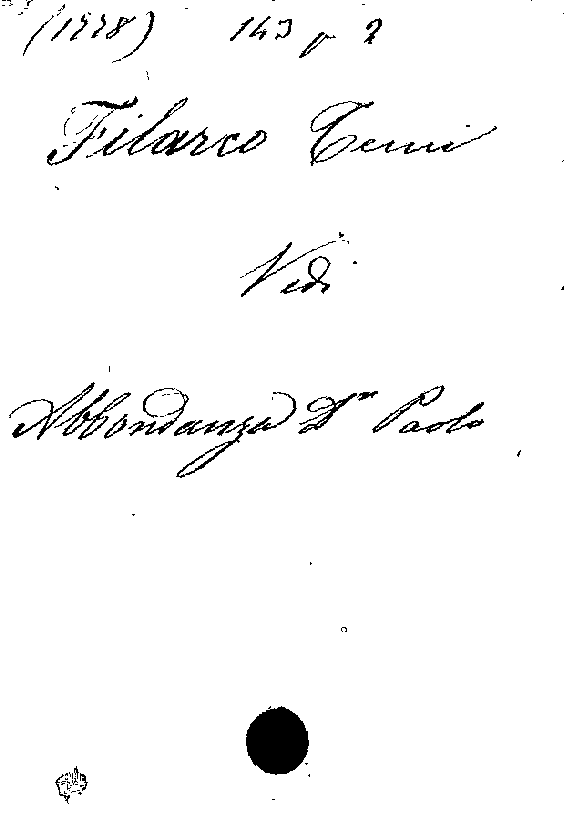 (1778) 143 p 2
Filarco Temi
Vedi
Abbondanza Dr Paolo